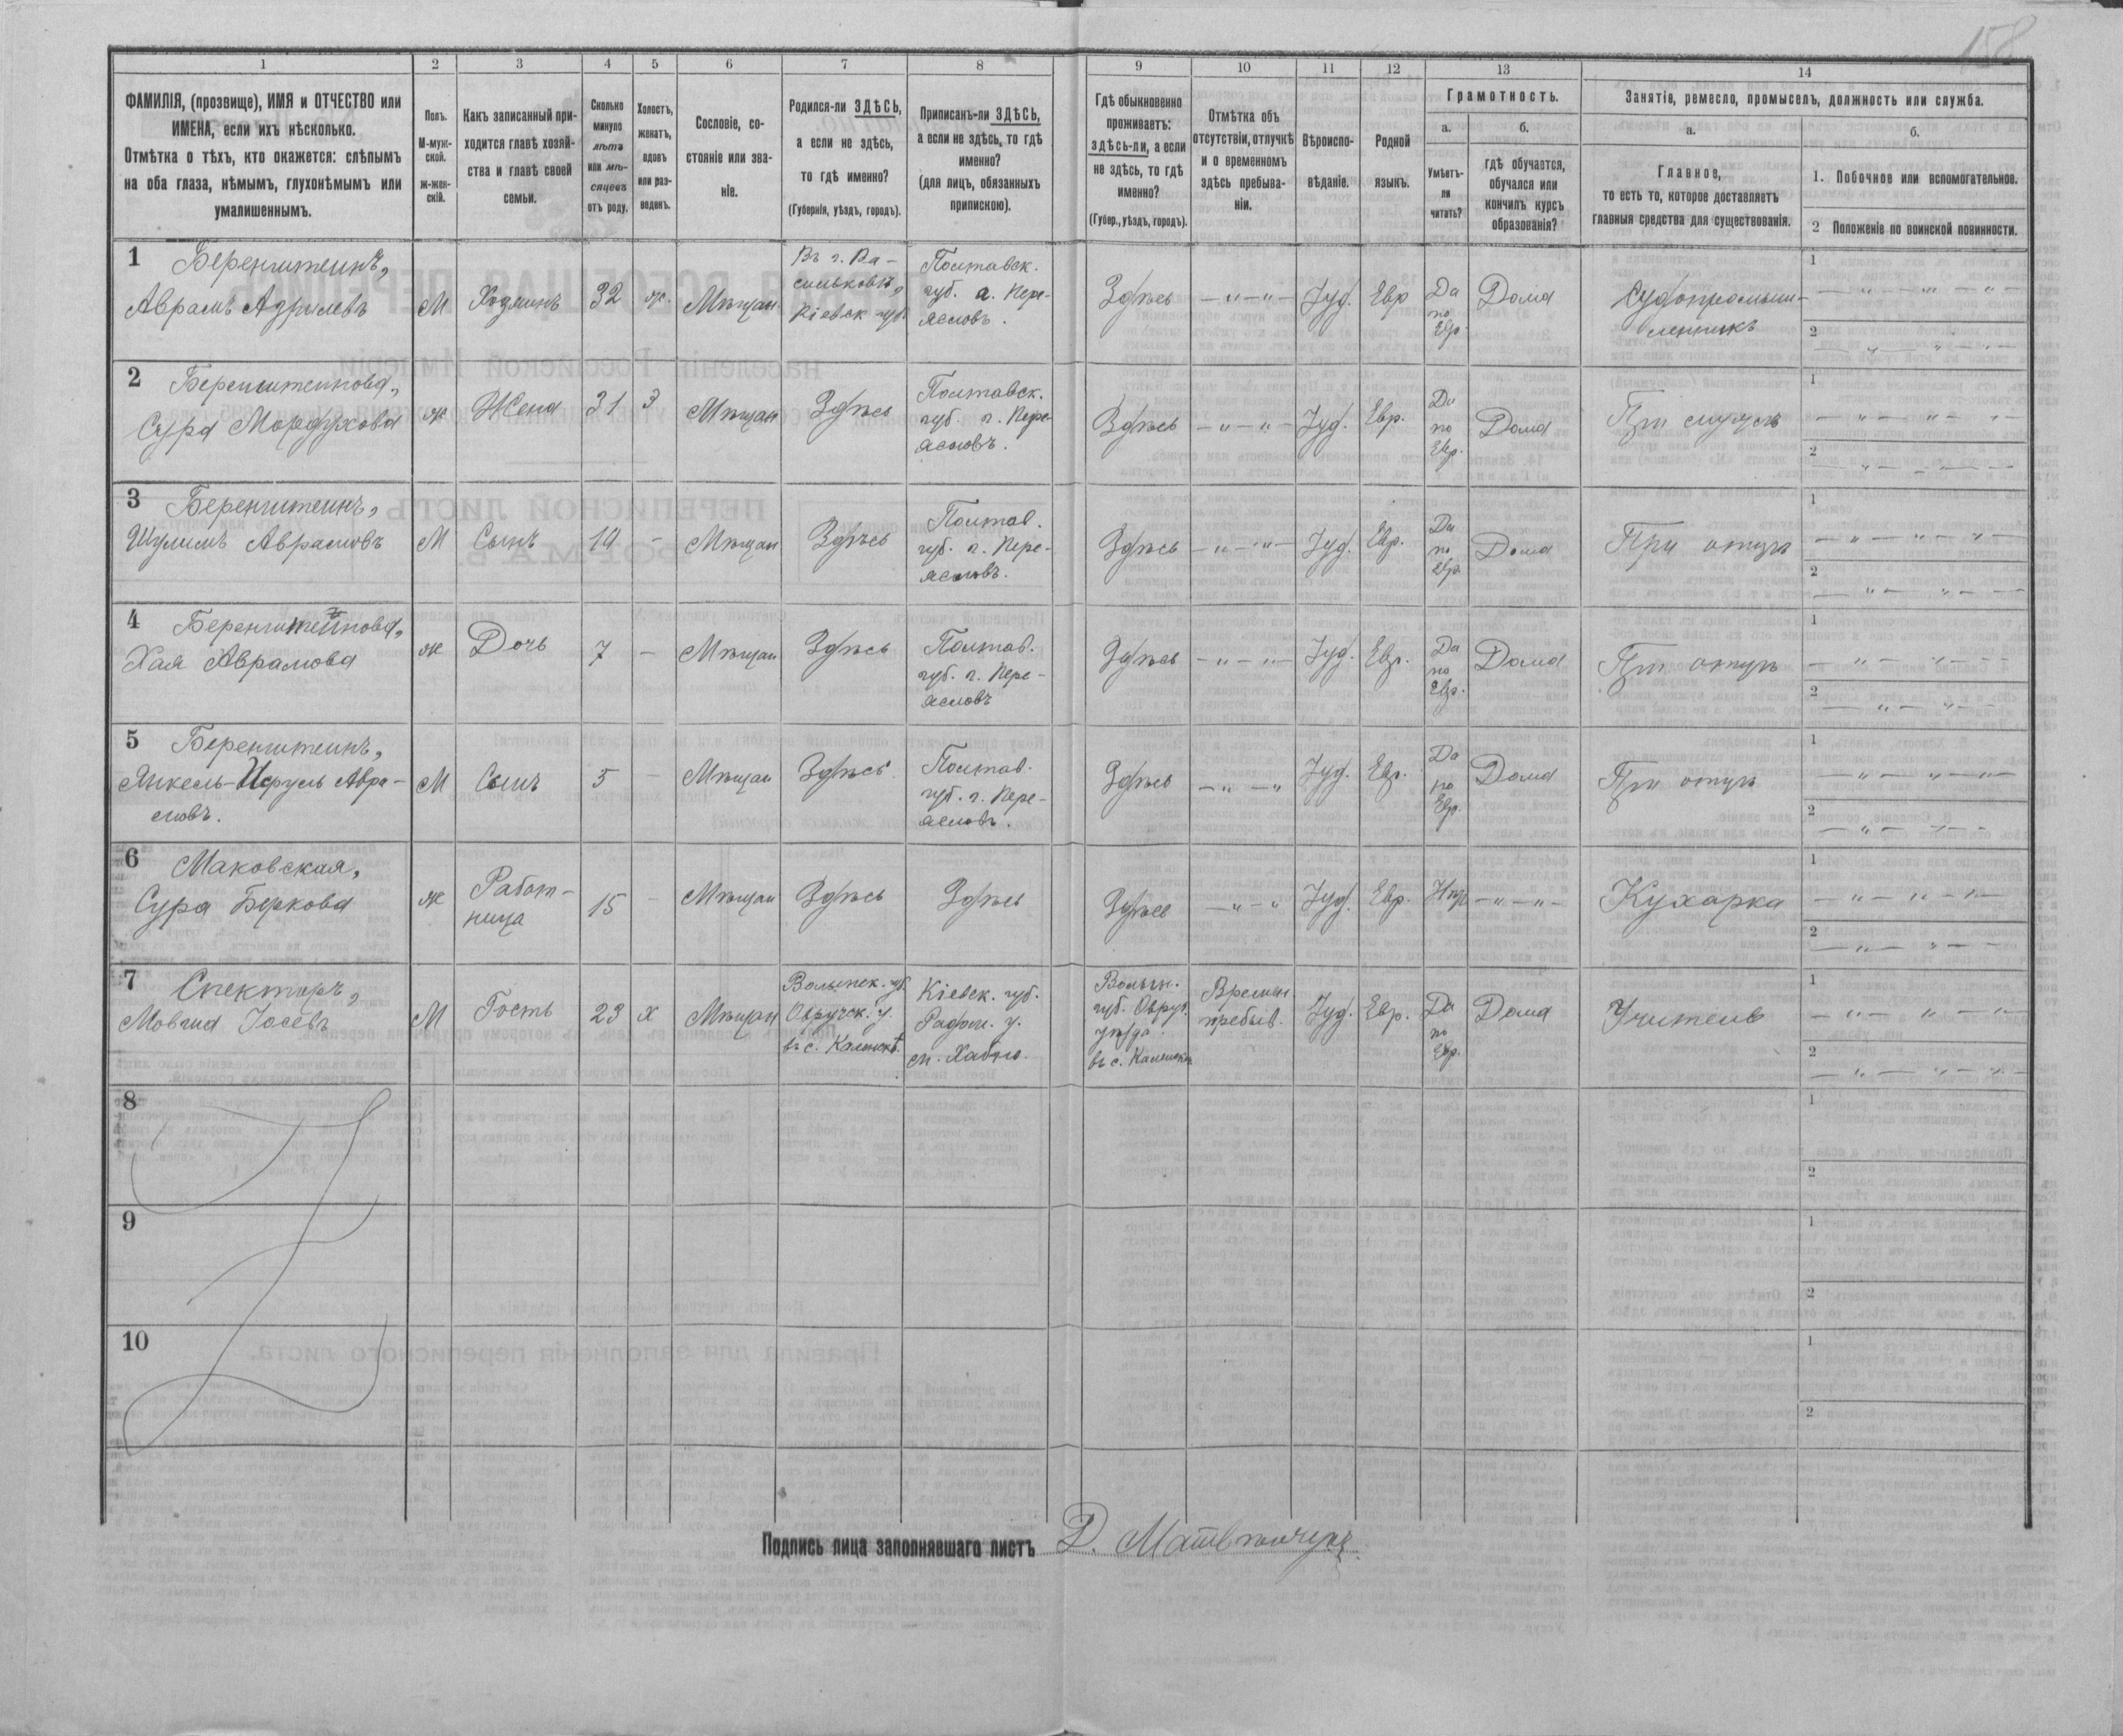 158
1 2 3 4 5 6 7 8 9 10 11 12 13 14
ФАМИЛІЯ, (прозвище), ИМЯ и ОТЧЕСТВО или
ИМЕНА, если ихъ нѣсколько.
Отмѣтка о тѣхъ, кто окажется: слѣпымъ
на оба глаза, нѣмымъ, глухонѣмымъ или
умалишеннымъ.
Полъ.
М-муж-
ской.
ж-жен-
скій.
Какъ записанный при-
ходится главѣ хозяй-
ства и главѣ своей
семьи.
Сколько
минуло
лѣтъ
или мѣ-
сяцевъ
отъ роду.
Холостъ,
женатъ,
вдовъ
или раз-
веденъ.
Сословіе, со-
стояніе или зва-
ніе.
Родился-ли ЗДѢСЬ,
а если не здѣсь,
то гдѣ именно?
(Губернія, уѣздъ, городъ).
Приписанъ-ли ЗДѢСЬ,
а если не здѣсь, то гдѣ
именно?
(для лицъ, обязанныхъ
припискою).
Гдѣ обыкновенно
проживаетъ:
здѣсь-ли, а если
не здѣсь, то гдѣ
именно?
(Губер., уѣздъ, городъ).
Отмѣтка объ
отсутствіи, отлучкѣ
и о временномъ
здѣсь пребыва-
ніи.
Вѣроиспо-
вѣданіе.
Родной
языкъ.
Грамотность.
а.
Умѣетъ-
ли
читать?
б.
гдѣ обучается,
обучался или
кончилъ курсъ
образованія?
Занятіе, ремесло, промыселъ, должность или служба.
а.
Главное,
то есть то, которое доставляетъ
главныя средства для существованія.
б.
1. Побочное или вспомогательное.
2 Положеніе по воинской повинности.
1 Беренштеинъ,
Аврамъ
М
Хозяинъ
32
ж.
Мѣщан
Въ г. Ва-
сильковѣ,
Кіевск губ
Полтавск.
губ. г. Пере-
яславъ.
Здѣсь
— „ — „ —
Іуд.
Евр
Да
по
Евр
Дома
Судопромыш-
ленникъ
1 — „ — „ — „ —
2 — „ — „ — —
2 Беренштеинова,
Сура Мордухова
ж
Жена
31
З
Мѣщан
Здѣсь
Полтавск.
губ. г. Пере-
яславъ.
Здѣсь
— „ — „ —
Іуд.
Евр.
Да
по
Евр.
Дома
При мужѣ
1 — „ — „ — „ —
2 — „ — „ — —
3 Беренштеинъ,
Шулимъ Аврамовъ
М
Сынъ
–
Мѣщан
Здѣсь
Полтав.
губ. г. Пере-
яславъ.
Здѣсь
— „ — „ —
Іуд.
Евр.
Да
по
Евр.
Дома
При отцѣ
1 — „ — „ — „ —
2 — „ — „ — —
4 Беренштейнова,
Хая Аврамова
ж
Дочь
7
–
Мѣщан
Здѣсь
Полтав.
губ. г. Пере-
яславъ
Здѣсь
— „ — „ —
Іуд.
Евр.
Да
по
Евр.
Дома
При отцѣ
1 — „ — „ — —
2 — „ — „ — —
5 Беренштеинъ,
Янкель-Исруль Авра-
мовъ.
М
Сынъ
5
–
Мѣщан
Здѣсь
Полтав.
губ. г. Пере-
яславъ.
Здѣсь
— „ — „
Іуд.
Евр.
Да
по
Евр.
Дома
При отцѣ
1 — „ — „ — „ —
2 — „ — „ — —
6 Маковская,
Сура Беркова
ж
Работ-
ница
15
–
Мѣщан
Здѣсь
Здѣсь
Здѣсь
— „ — „
Іуд.
Евр.
Нѣт
— „ — „ —
Кухарка
1 — „ — „ — „ —
2 — „ — „ — —
7 Спекторъ,
Мовша Іосевъ
М
Гость
23
х
Мѣщан
Волынск. губ.
Овручск. у.
въ с.
Кіевск. губ.
Радом. у.
м. Хабно.
Волын.
губ. Овруч.
уѣзда
въ с.
Времен.
пребыв.
Іуд.
Евр.
Да
по
Евр.
Дома
Учитель
1 — „ — „ — „ —
2 — „ — „ — „ —
8
1
2
9
1
2
10
1
2
Подпись лица заполнявшаго листъ